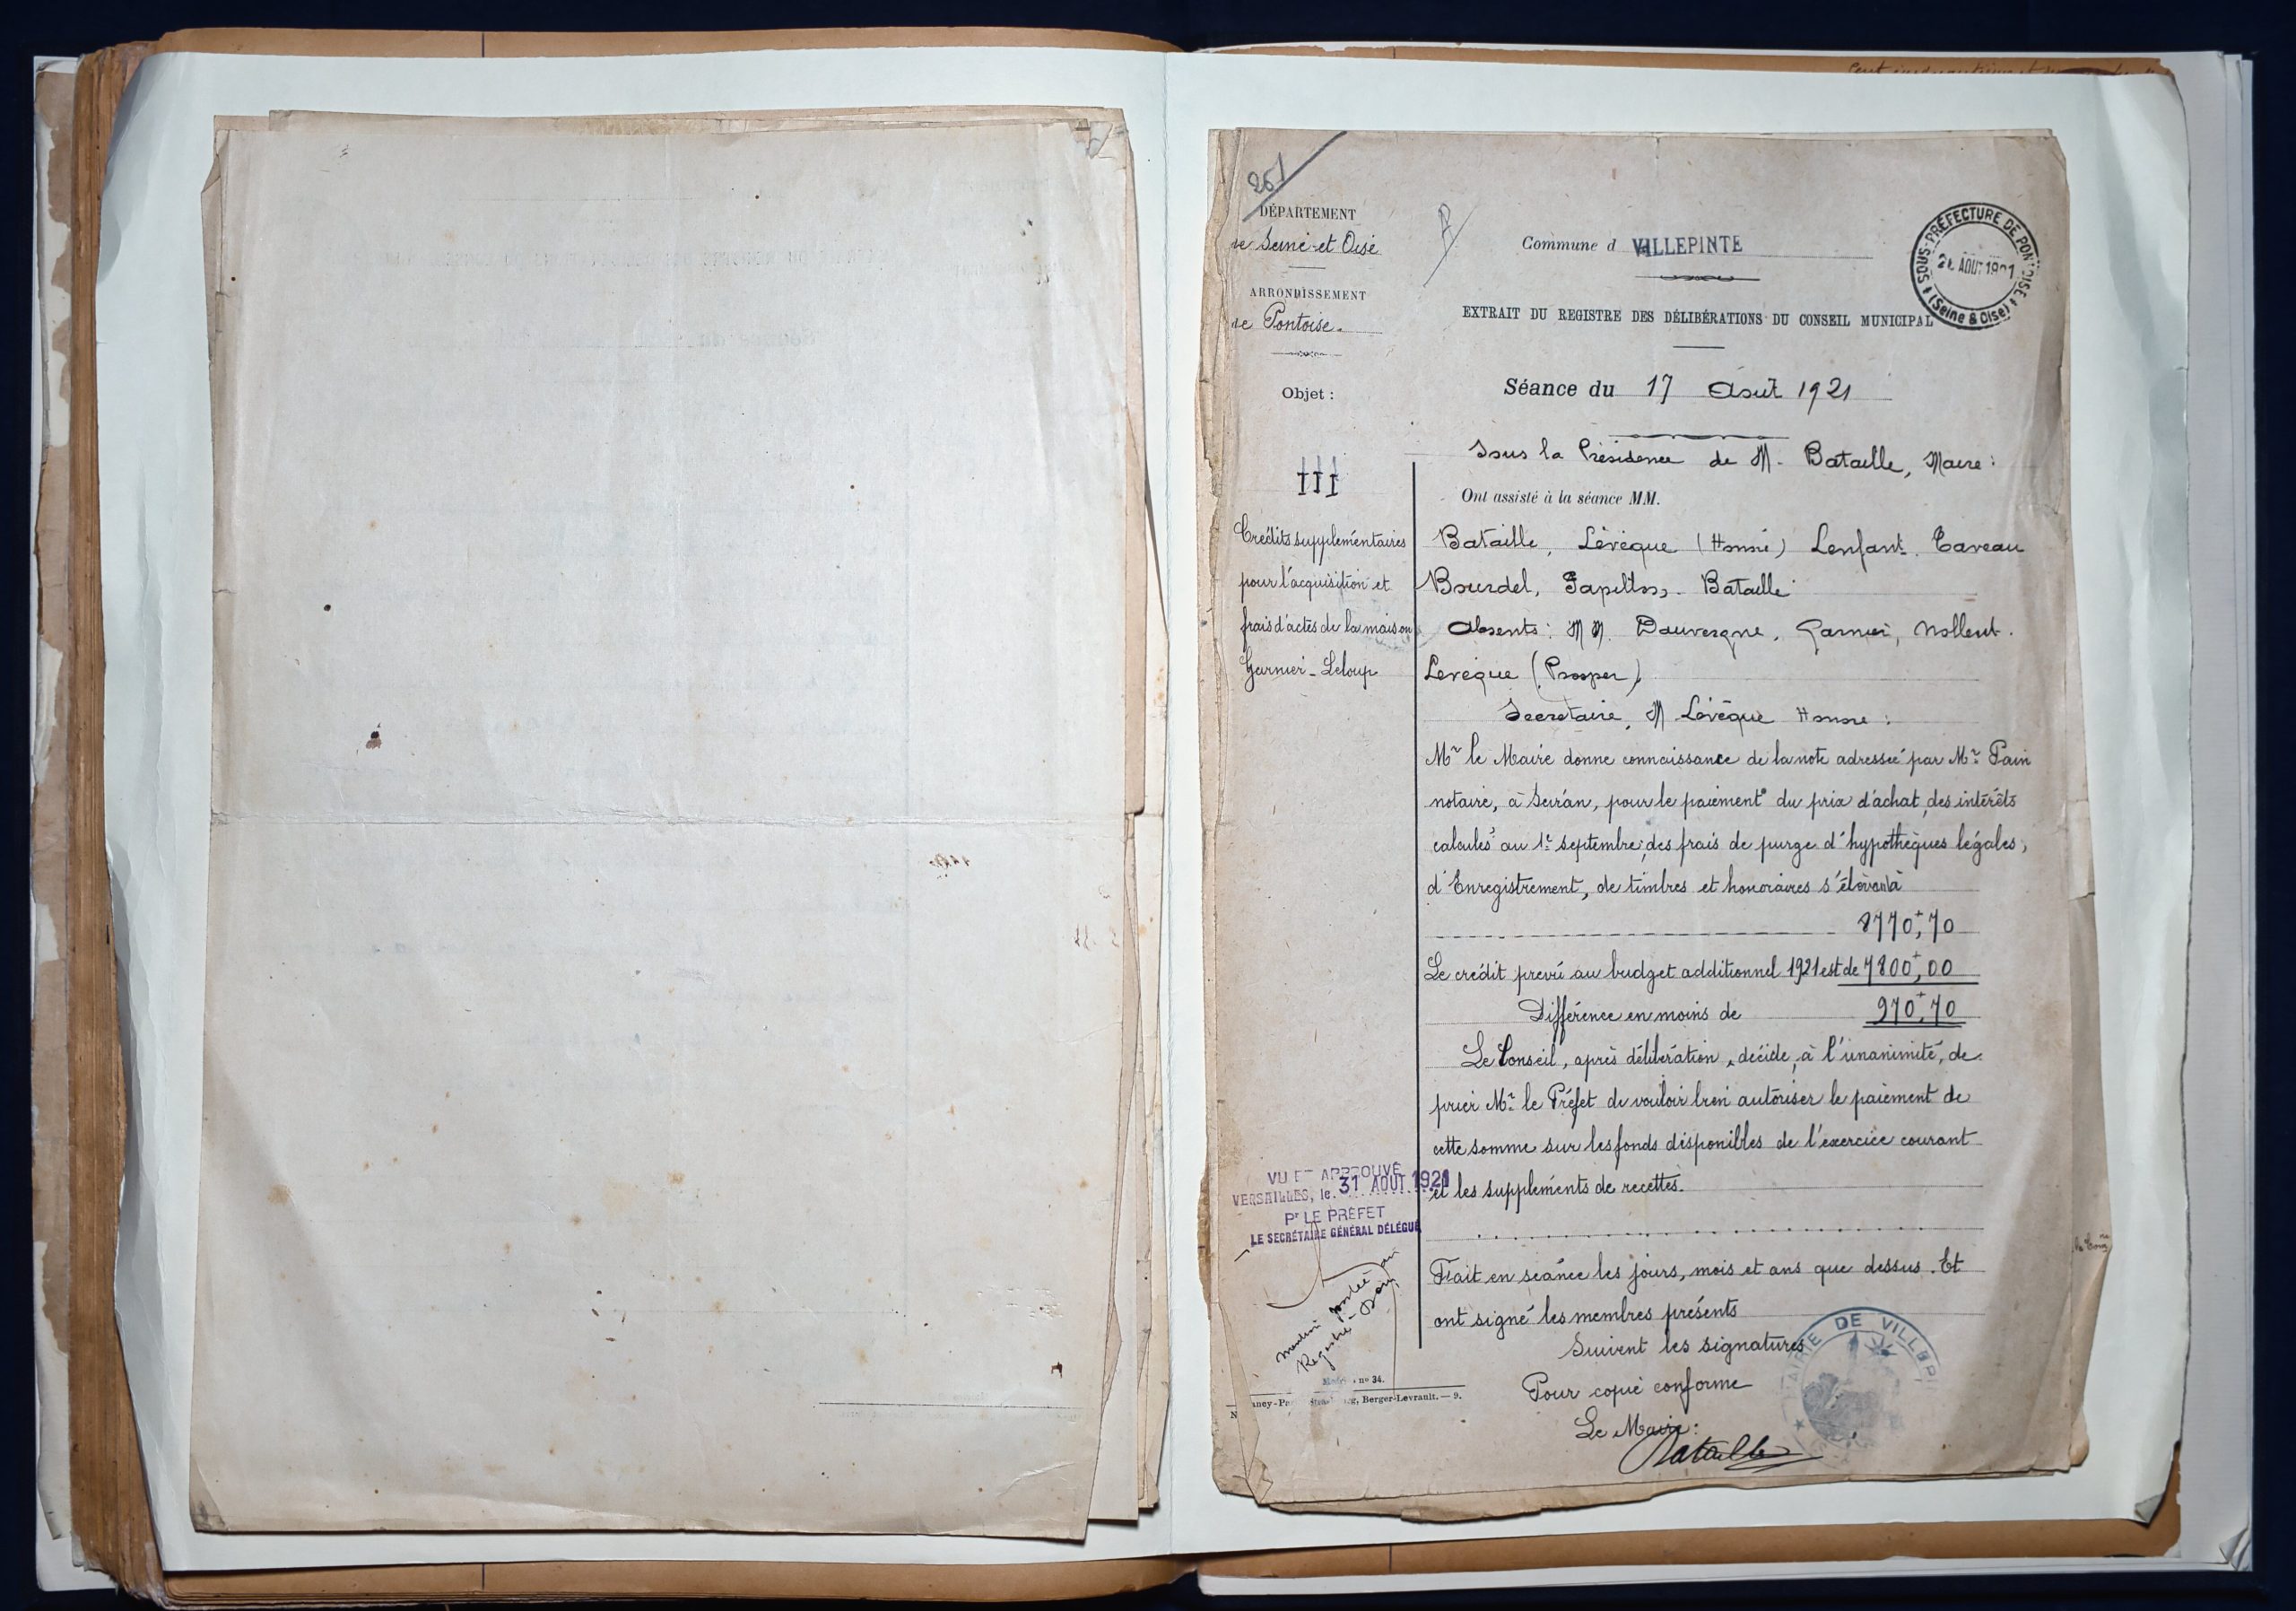 261
DÉPARTEMENT
de Seine et Oise
ARRONDISSEMENT
de Pontoise.
Objet :
III
Crédits supplémentaires
pour l'acquisition et
frais d'actes de la maison
Garnier - Leloup
VU ET APPROUVÉ
VERSAILLES, le 31 AOUT 1921
Pr LE PRÉFET
LE SECRÉTAIRE GÉNÉRAL DÉLÉGUÉ
Registre
n° 34.
Berger-Levrault. — 9.
Commune d VILLEPINTE
SOUS-PRÉFECTURE DE PONTOISE
AOUT 1921
(Seine & Oise)
EXTRAIT DU REGISTRE DES DÉLIBÉRATIONS DU CONSEIL MUNICIPAL
Séance du 17 Août 1921
Sous la Présidence de M. Bataille, Maire :
Ont assisté à la séance MM.
Bataille, Lévêque (Honoré) Lenfant, Taveau
Bourdel, Bataille
Absents : MM. Dauvergne, Garnier, Nollent.
Levêque (Prosper)
Secretaire, M Lévêque Honoré :
Mr le Maire donne connaissance de la note adressée par Mr Pain
notaire, à Sevran, pour le paiement du prix d'achat, des intérêts
calculés au 1er septembre, des frais de purge d'hypothèques légales,
d'Enregistrement, de timbres et honoraires s'élevant à
8770,70
Le crédit prévu au budget additionnel 1921 est de 7800,00
Différence en moins de 970,70
Le Conseil, après délibération, décide, à l'unanimité, de
prier Mr le Préfet de vouloir bien autoriser le paiement de
cette somme sur les fonds disponibles de l'exercice courant
et les suppléments de recettes.
Fait en séance les jours, mois et ans que dessus. Et
ont signé les membres présents
Suivent les signatures
Pour copie conforme
Le Maire :
Bataille
MAIRIE DE VILLEPI